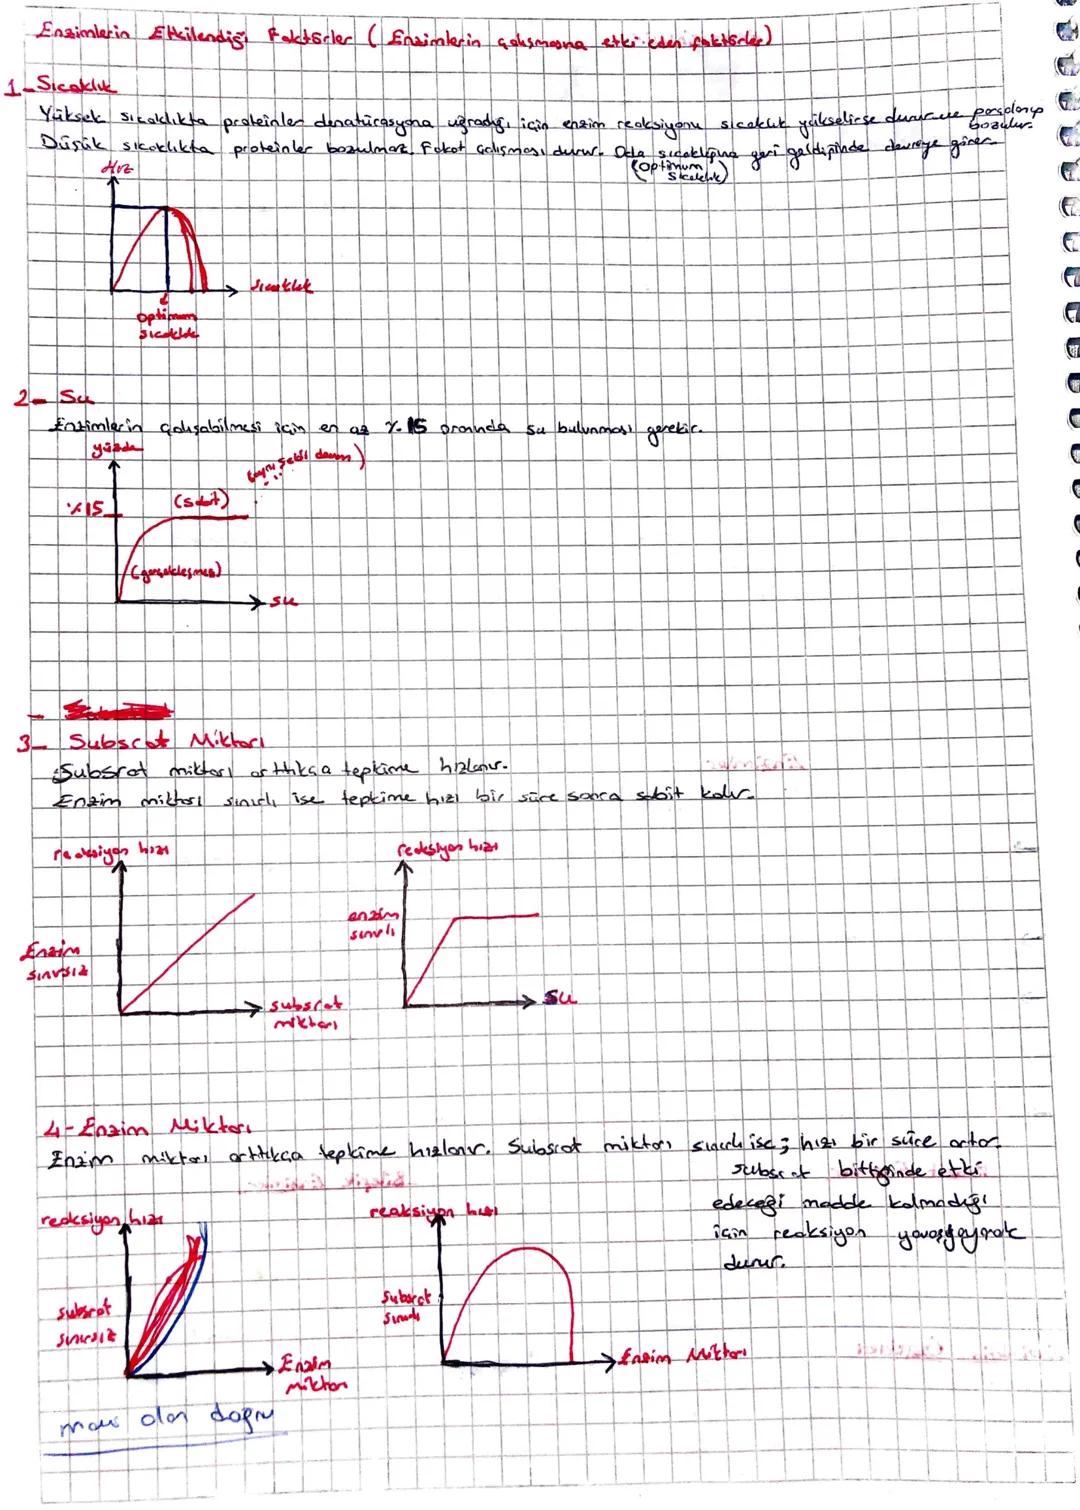 Enzimlerin Etkilendiği Faktörler ( Enzimlerin çalışmasına etki eden faktörler)
1- Sıcaklık
Yüksek sıcaklıkta proteinler denatürasyona uğradığı için enzim reaksiyonu sıcaklık yükselirse durur ve parçalanıp bozulur.
Düşük sıcaklıkta proteinler bozulmaz. Fakat çalışması durur. Oda sıcaklığına geri geldiğinde devreye girer.
(Optimum sıcaklık)
Hız
sıcaklık
optimum
sıcaklık
2- Su
Enzimlerin çalışabilmesi için en az %15 oranında su bulunması gerekir.
yüzde
(aynı şekil devam)
%15
(sabit)
(gerçekleşmez)
su
3- Subsrat Miktarı
Subsrat miktarı arttıkça tepkime hızlanır.
Enzim miktarı sınırlı ise tepkime hızı bir süre sonra sabit kalır.
reaksiyon hızı
Enzim
sınırsız
subsrat
miktarı
reaksiyon hızı
enzim
sınırlı
su
4- Enzim Miktarı
Enzim miktarı arttıkça tepkime hızlanır. Subsrat miktarı sınırlı ise; hızı bir süre artar.
subsrat bittiğinde etki
edeceği madde kalmadığı
için reaksiyon yavaşlayarak
durur.
reaksiyon hızı
subsrat
sınırsız
Enzim
miktarı
reaksiyon hızı
Subsrat
Sınırlı
Enzim Miktarı
mavi olan doğru